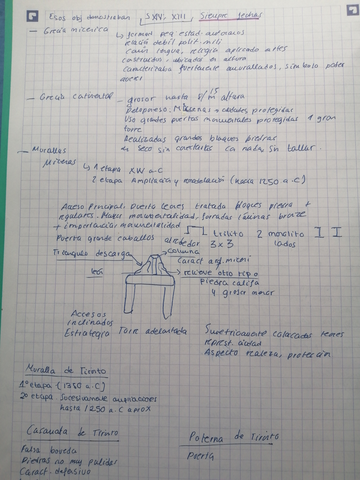 Esos obj demostraban, S XIV, XIII, Siempre
- Grecia micénica ↳ forman peq. estad. autonomos
relación débil polit-mili
común lengua, religión aplicado artes
construidos - ubicados en altura
Caracterizaba fuertemente amurallados, simbolo poder
- Grecia continental - grosor hasta 5/m altura 15
Peloponeso, Micenas: ciudades protegidas
Uso grandes puertas monumentales protegidas 1 gran
torre
Realizadas grandes bloques piedras
en seco sin cementar con nada, sin tallar.
- Murallas
Micenas ↳ 1 etapa XIV a.C
2 etapa Ampliación y remodelación (hacia 1250 a.C)
Acceso Principal. Puerta leones tratada bloques piedra +
regulares. Mayor monumentalidad, forradas láminas bronze
+ importancia monumentalidad trilito 2 monolito
Puerta grande caballos alrededor 3x3 lados
Triangulo descarga columna
Caract arq. miceni
león relieve otro tipo
Piedra caliza
y grosor menor
Accesos
inclinados
Estrategia Torre adelantada
Simetricamente colocadas leones
represt. deidad
Aspecto realeza, protección.
Muralla de Tirinto
1ª etapa (1350 a.C)
2ª etapa Sucesivamente ampliaciones
hasta 1250 a.C aprox
Casamata de Tirinto
Falsa boveda
Piedras no muy pulidas
Caract. defensivo
Poterna de Tirinto
Puerta